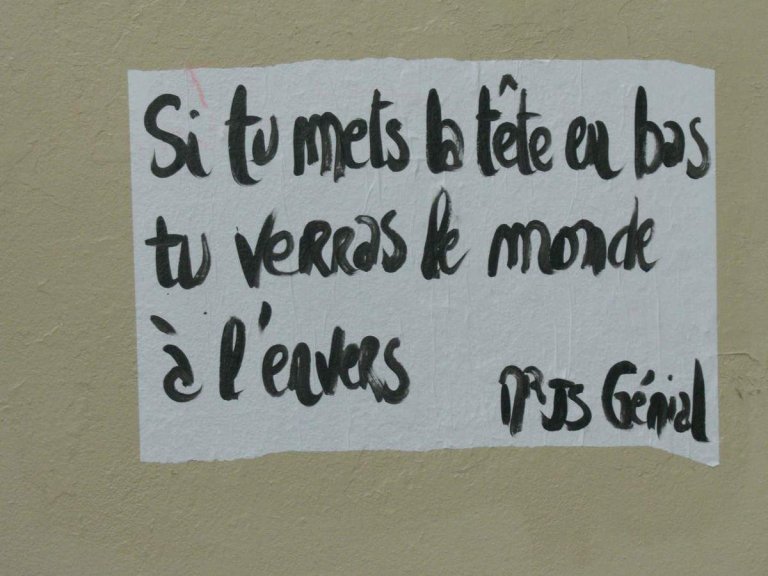 Si tu mets la tête en bas
tu verras le monde
à l'envers
Mr JS Génial